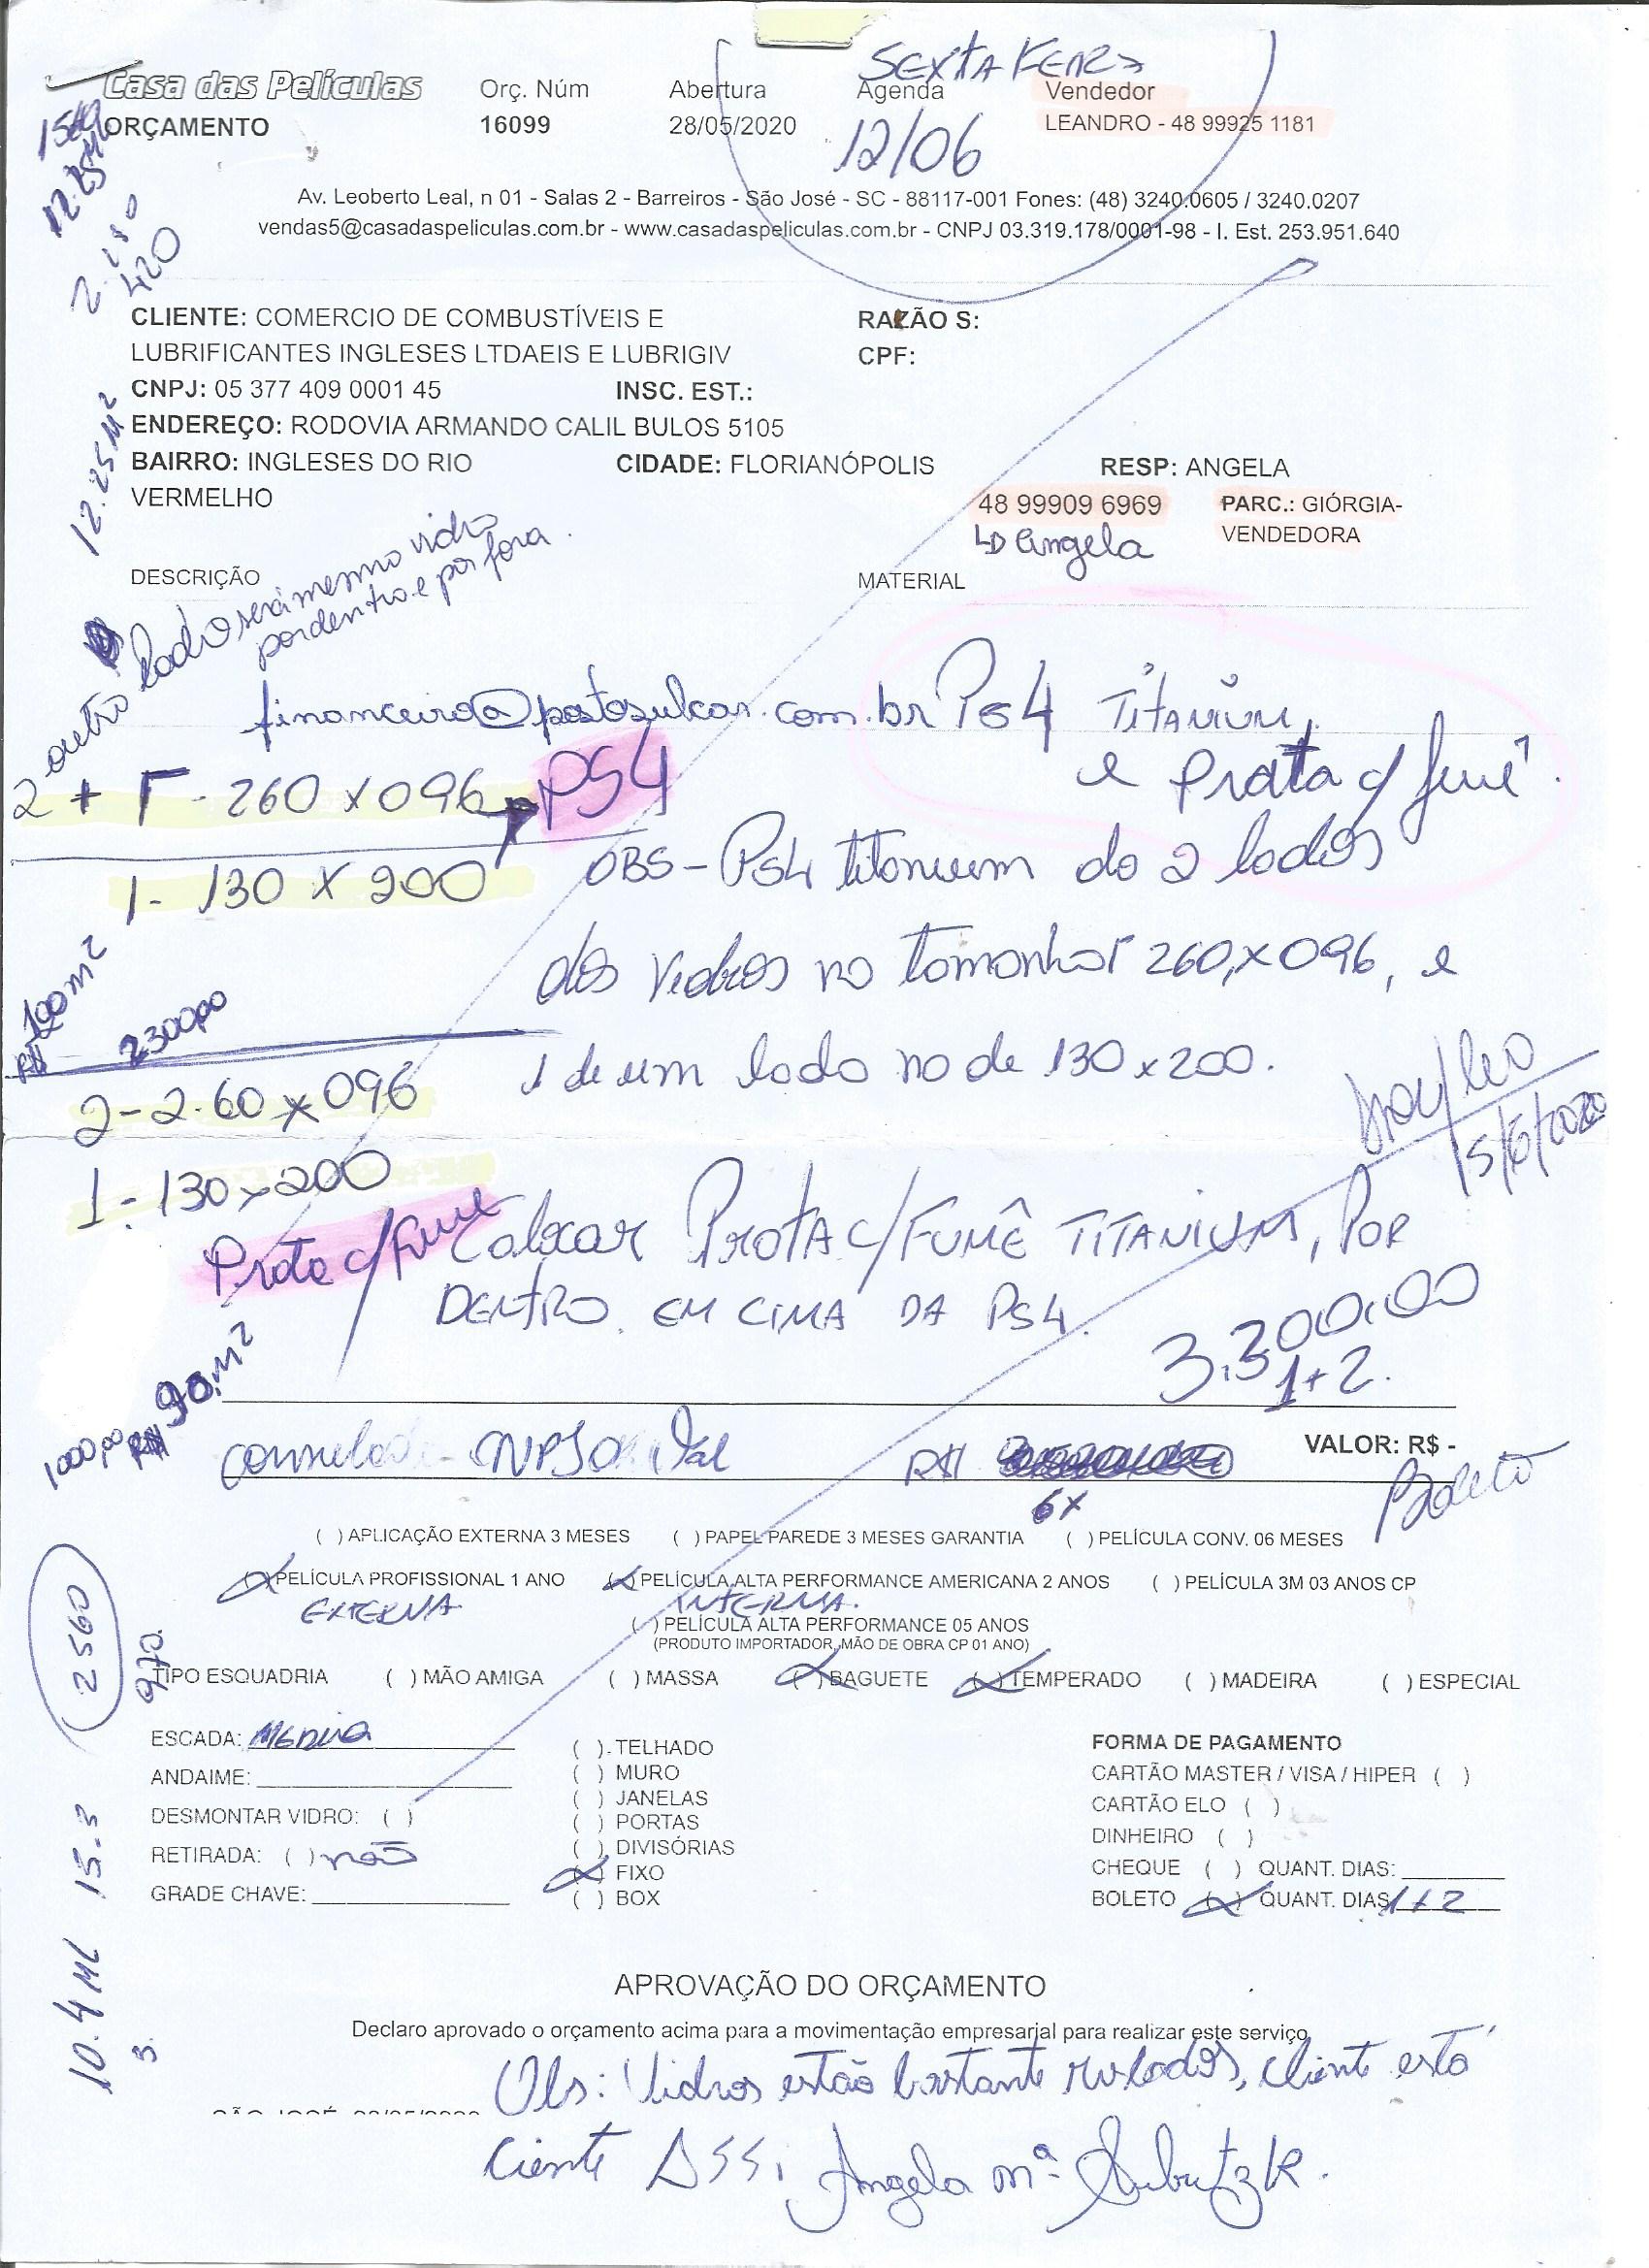 SEXTA FEIRA
Casa das Películas Orç. Núm Abertura Agenda Vendedor
ORÇAMENTO 16099 28/05/2020 12/06 LEANDRO - 48 99925 1181
Av. Leoberto Leal, n 01 - Salas 2 - Barreiros - São José - SC - 88117-001 Fones: (48) 3240.0605 / 3240.0207
vendas5@casadaspeliculas.com.br - www.casadaspeliculas.com.br - CNPJ 03.319.178/0001-98 - I. Est. 253.951.640
420
CLIENTE: COMERCIO DE COMBUSTÍVEIS E RAZÃO S:
LUBRIFICANTES INGLESES LTDAEIS E LUBRIGIV CPF:
CNPJ: 05 377 409 0001 45 INSC. EST.:
ENDEREÇO: RODOVIA ARMANDO CALIL BULOS 5105
12.25 M²
BAIRRO: INGLESES DO RIO CIDADE: FLORIANÓPOLIS RESP: ANGELA
VERMELHO 48 99909 6969 PARC.: GIÓRGIA-
Angela VENDEDORA
DESCRIÇÃO MATERIAL
outro lado será mesmo vidro
por dentro e por fora.
financeiro@postosulcar.com.br PS4 TITANIUM,
e Prata c/ fumê.
2 + 1 - 260 x 096 PS4
1 - 130 x 200 OBS - PS4 titanium do 2 lados
dos vidros no tamanho 260 x 096, e
100 m²
2300,00
1 de um lado no de 130 x 200.
2 - 2.60 x 096
1 - 130 x 200
15/6/2020
Prata c/ Fumê Colocar PRATA C/FUMÊ TITANIUM, POR
DENTRO. EM CIMA DA PS4.
3.300,00
1+2.
90, M²
1000,00
R$ VALOR: R$ -
6x Boleto
( ) APLICAÇÃO EXTERNA 3 MESES ( ) PAPEL PAREDE 3 MESES GARANTIA ( ) PELÍCULA CONV. 06 MESES
(X) PELÍCULA PROFISSIONAL 1 ANO (X) PELÍCULA ALTA PERFORMANCE AMERICANA 2 ANOS ( ) PELÍCULA 3M 03 ANOS CP
EXTERNA INTERNA.
( ) PELÍCULA ALTA PERFORMANCE 05 ANOS
(PRODUTO IMPORTADOR, MÃO DE OBRA CP 01 ANO)
2560
970.
TIPO ESQUADRIA ( ) MÃO AMIGA ( ) MASSA (X) BAGUETE (X) TEMPERADO ( ) MADEIRA ( ) ESPECIAL
ESCADA: MÉDIA
ANDAIME:
DESMONTAR VIDRO: ( )
RETIRADA: ( ) não
GRADE CHAVE:
( ) TELHADO
( ) MURO
( ) JANELAS
( ) PORTAS
( ) DIVISÓRIAS
(X) FIXO
( ) BOX
FORMA DE PAGAMENTO
CARTÃO MASTER / VISA / HIPER ( )
CARTÃO ELO ( )
DINHEIRO ( )
CHEQUE ( ) QUANT. DIAS:
BOLETO (X) QUANT. DIAS 1+2
10.4 ML 15.3
3.
APROVAÇÃO DO ORÇAMENTO
Declaro aprovado o orçamento acima para a movimentação empresarial para realizar este serviço
Obs: Vidros estão bastante riscados, cliente está
ciente Ass: Angela Mª